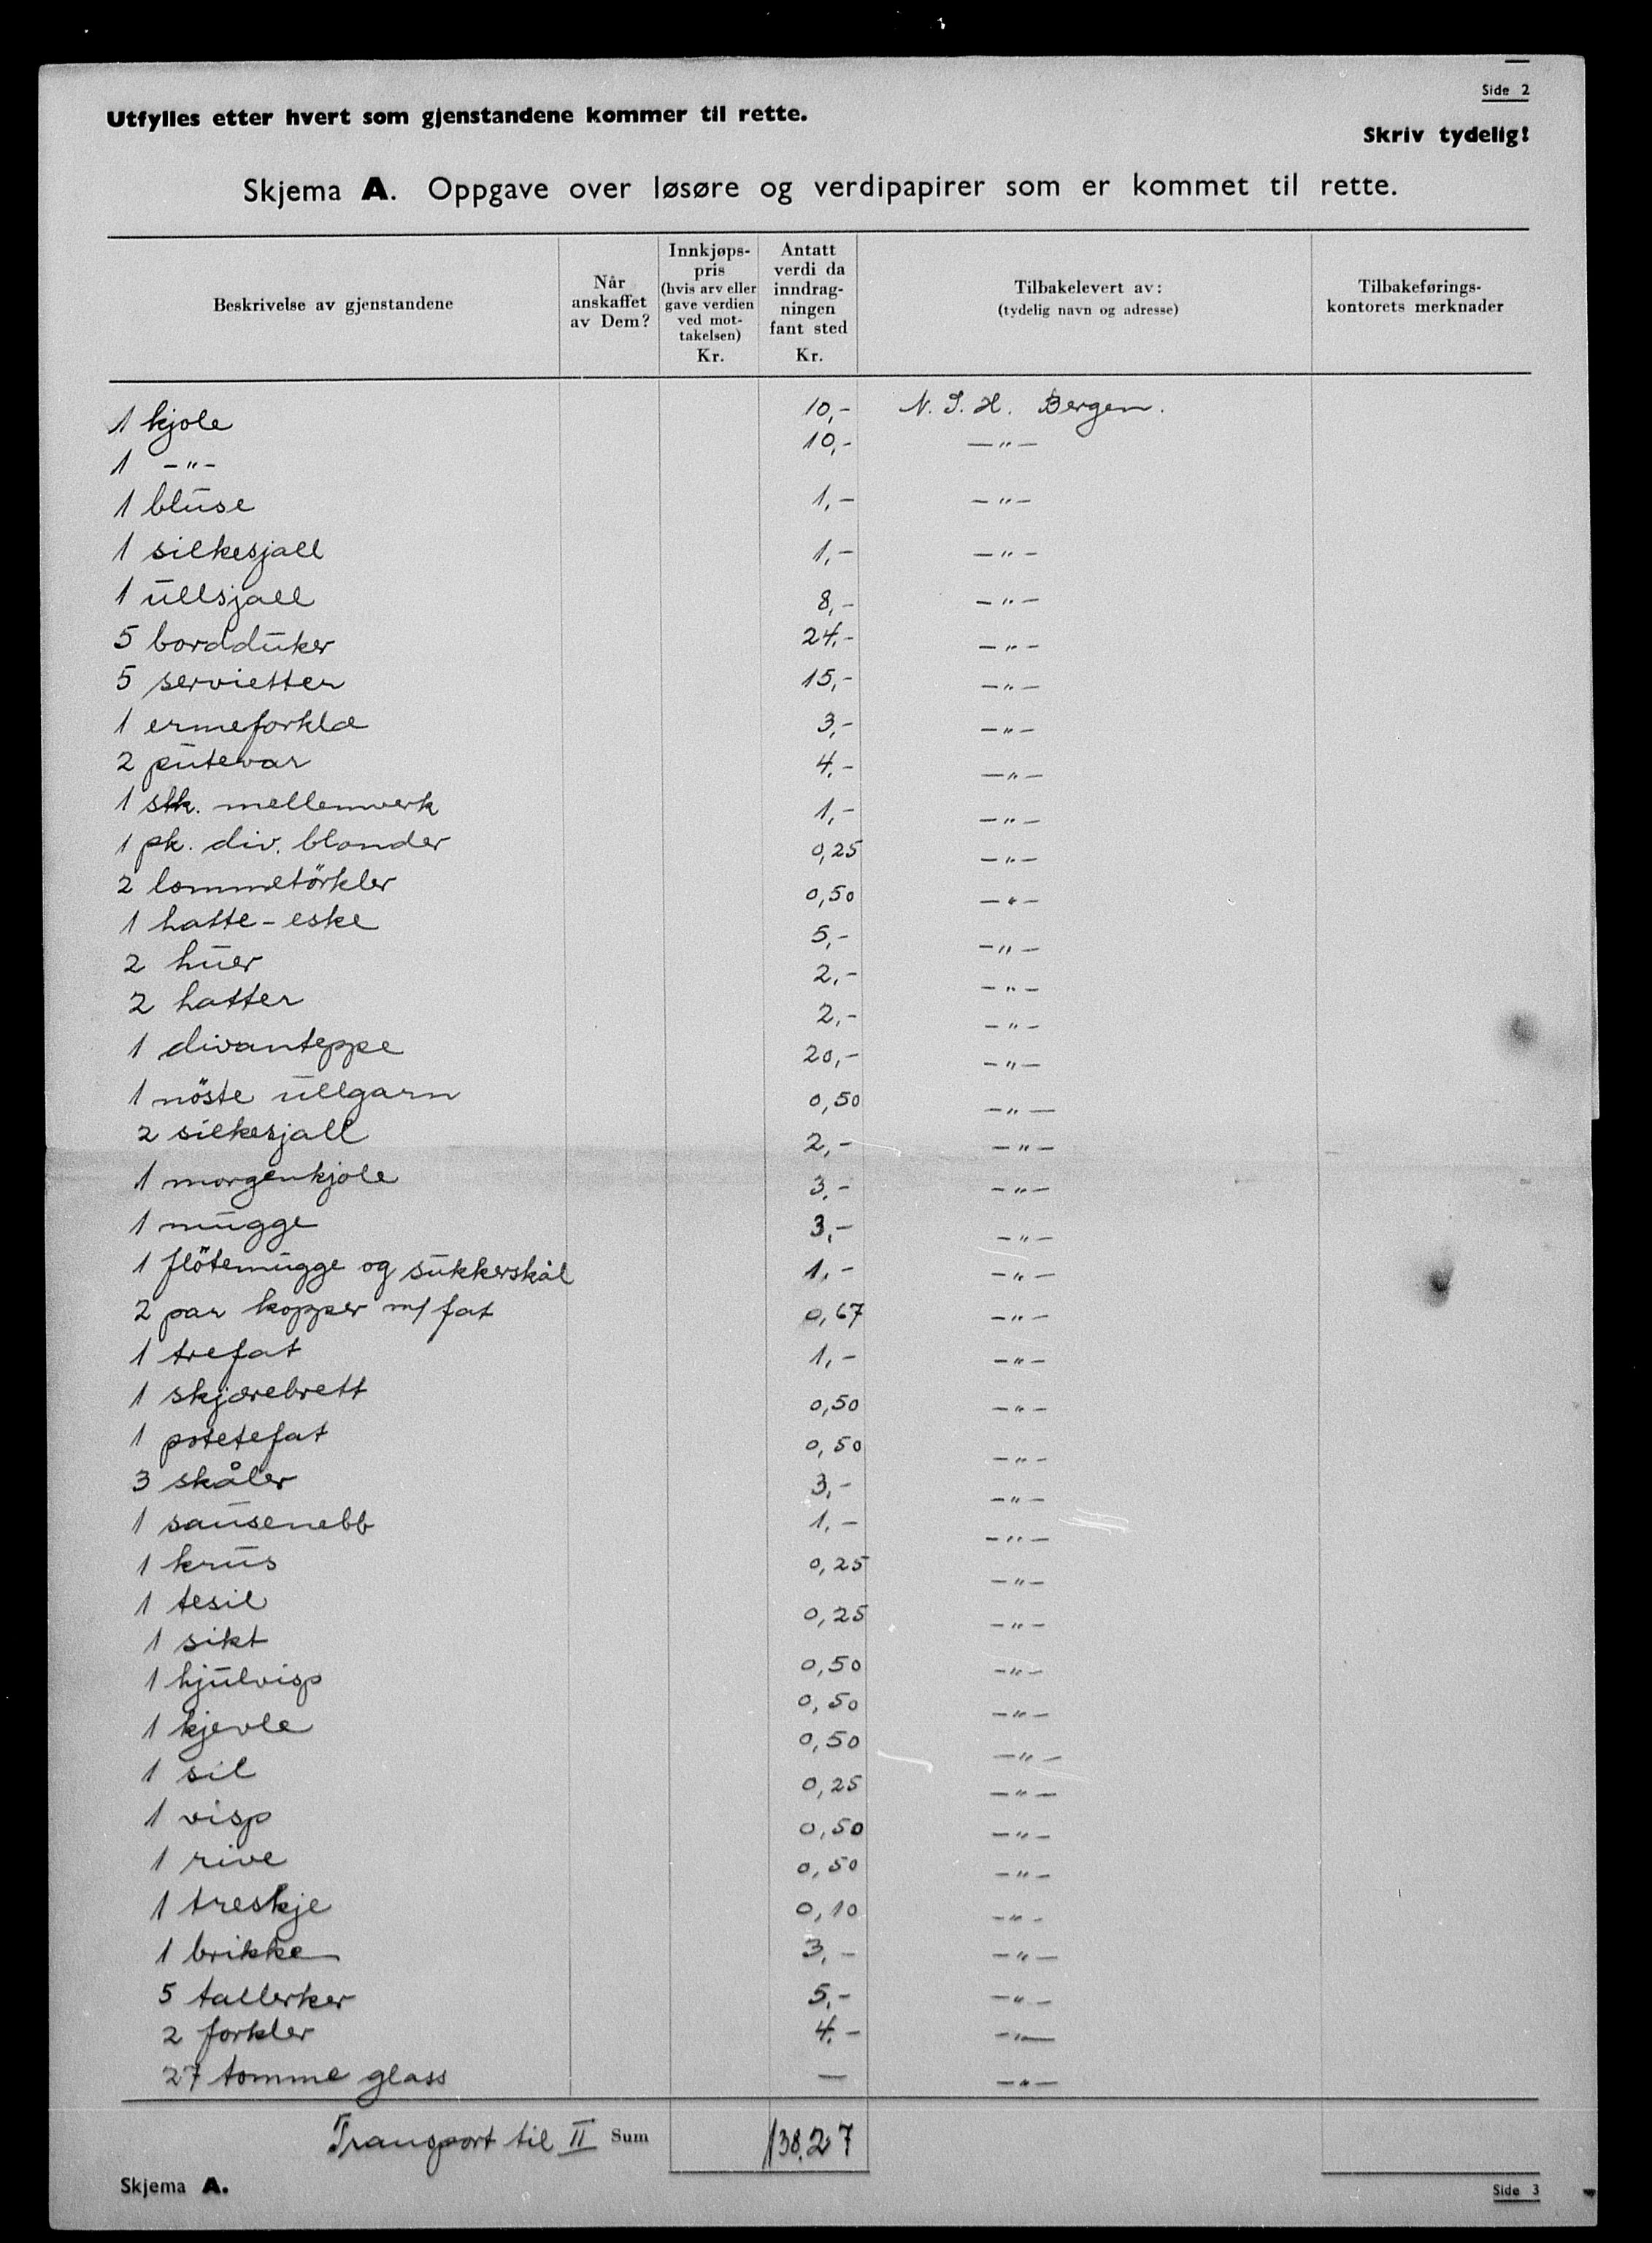 Side 2
Utfylles etter hvert som gjenstandene kommer til rette.
Skriv tydelig!
Skjema A. Oppgave over løsøre og verdipapirer som er kommet til rette.
Beskrivelse av gjenstandene
Når anskaffet av Dem?
Innkjøps-pris (hvis arv eller gave verdien ved mot-takelsen) Kr.
Antatt verdi da inndrag-ningen fant sted Kr.
Tilbakelevert av: (tydelig navn og adresse)
Tilbakeførings-kontorets merknader
1 kjole 10,- N. I. H. Bergen.
1 -"- 10,- -"-
1 bluse 1,- -"-
1 silkesjall 1,- -"-
1 ullsjall 8,- -"-
5 bordduker 24,- -"-
5 servietter 15,- -"-
1 ermeforkle 3,- -"-
2 putevar 4,- -"-
1 stk. mellemverk 1,- -"-
1 pk. div. blonder 0,25 -"-
2 lommetörkler 0,50 -"-
1 hatte-eske 5,- -"-
2 huer 2,- -"-
2 hatter 2,- -"-
1 divanteppe 20,- -"-
1 nöste ullgarn 0,50 -"-
2 silkesjall 2,- -"-
1 morgenkjole 3,- -"-
1 mugge 3,- -"-
1 flötemugge og sukkerskål 1,- -"-
2 par kopper m/ fat 0,67 -"-
1 trefat 1,- -"-
1 skjærebrett 0,50 -"-
1 potetefat 0,50 -"-
3 skåler 3,- -"-
1 sausenebb 1,- -"-
1 krus 0,25 -"-
1 tesil 0,25 -"-
1 sikt 0,50 -"-
1 hjulvisp 0,50 -"-
1 kjevle 0,50 -"-
1 sil 0,25 -"-
1 visp 0,50 -"-
1 rive 0,50 -"-
1 treskje 0,10 -"-
1 brikke 3,- -"-
5 tallerker 5,- -"-
2 forkler 4,- -"-
27 tomme glass — -"-
Transport til II Sum 138.27
Skjema A.
Side 3